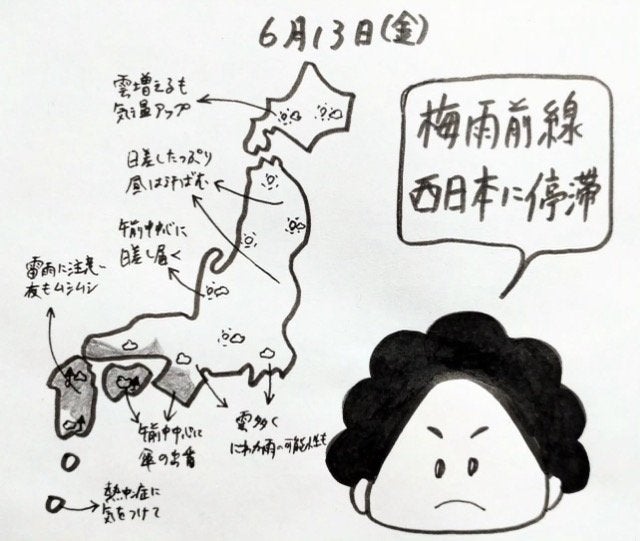 6月13日(金)
梅雨前線
西日本に停滞
雲増えるも
気温アップ
日差したっぷり
昼は汗ばむ
午前中心に
日差し届く
雷雨に注意
夜もムシムシ
午前中心に
傘の出番
雲多く
にわか雨の可能性も
熱中症に
気をつけて